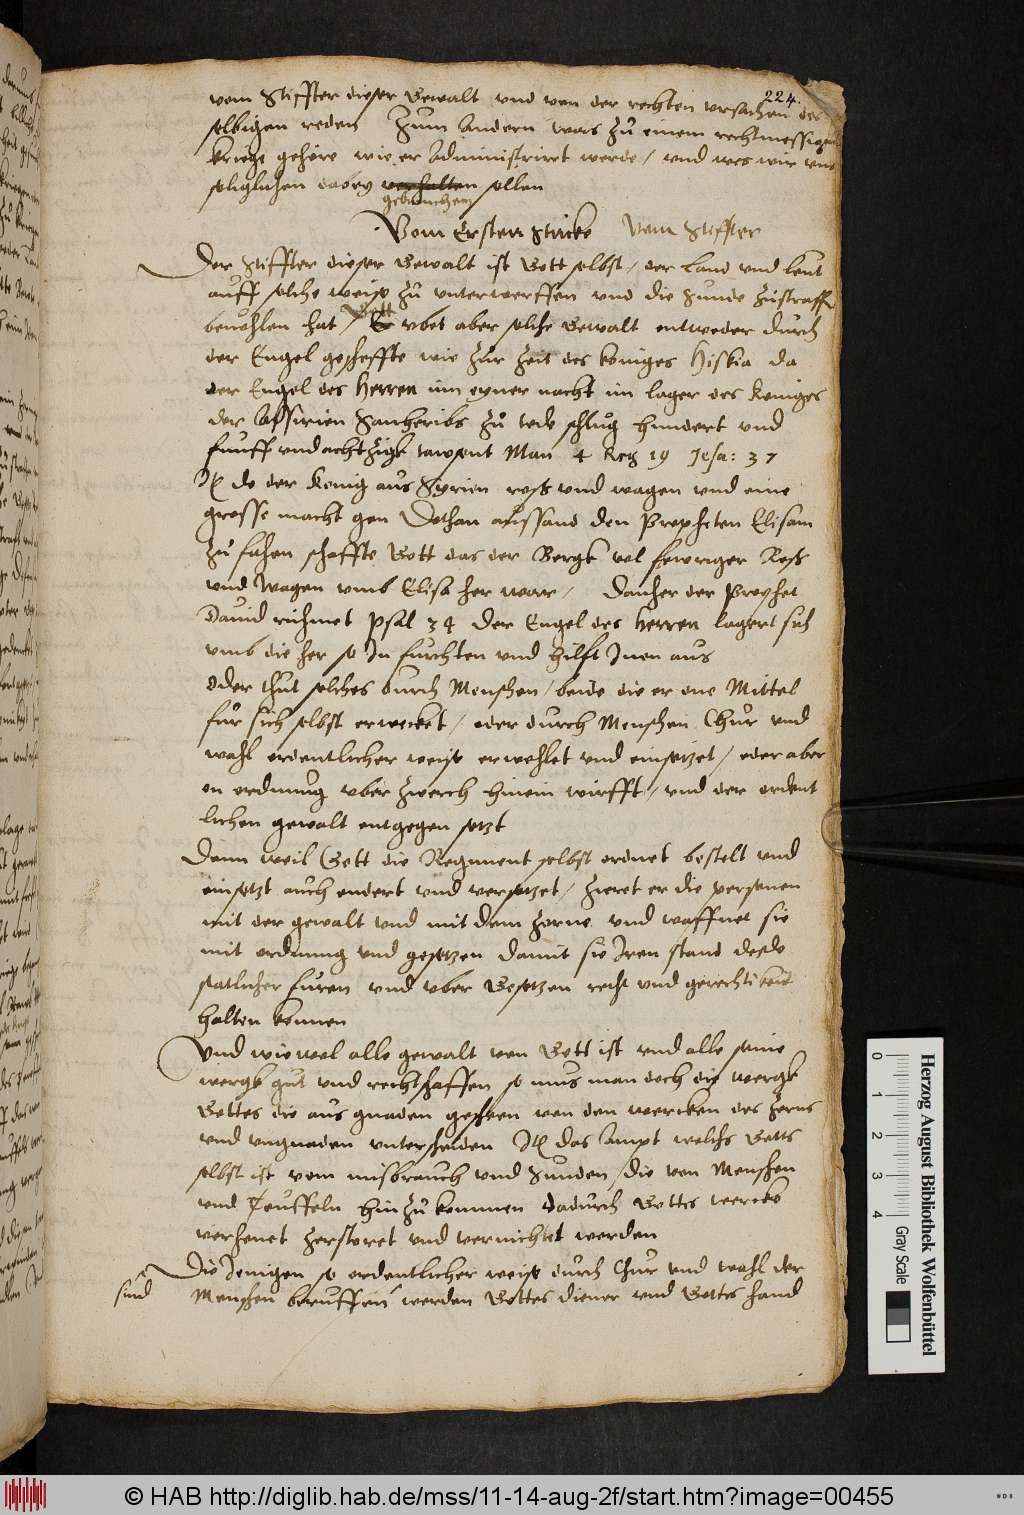 224.
vom Stiffter dieser Gewalt vnd von der rechten vrsachen des
selbigen reden Zum Andern was zů einem rechtmessigen
kriege gehöre wie er Administrirt werde / vnd wes wir vns
seliglichen dabey verhalten sollen
gebrauchen
Vom Ersten Stucke Vom Stiffter
Der Stiffter dieser Gewalt ist Gott selbst / der Land vnd leut
auff solche weise zů vnterwerffen vnd die Sunde zůstraffen
beuohlen hat / Er vbet aber solche Gewalt entweder durch
Gott
der Engel gescheffte wie zůr Zeit des koniges Hiskia da
der Engel des Herren inn eyner nacht im lager des Koniges
der Assirien Sanheribs zů tode schlůg hundert vnd
funff vnd achtzigk tawsent Man 4 Reg 19 Jesa: 37
Jt do der Konig aus Syrien ross vnd wagen vnd eine
grosse macht gen Dothan aussand den Propheten Elisam
zů fahen schaffte Gott das der Bergk vol fewriger Ross
vnd Wagen vmb Elisa her war / Danher der Prophet
Dauid rühmet Psal 34 Der Engel des Herren lagert sich
vmb die her so Jn furchten vnd hilft Jnen aus
Oder thut solches durch Menschen / beide die er one Mittel
für sich selbst erwecket / oder durch Menschen Chůr vnd
wahl ordentlicher weise erwehlet vnd einsetzet / oder aber
on ordnung vber zwerch hinein wirfft / vnd der ordent
lichen gewalt entgegen setzt
Denn weil Gott die Regiment selbst ordnet bestelt vnd
einsetzt auch endert vnd versetzet / zieret er die personen
mit der gewalt vnd mit dem zorne vnd waffnet sie
mit ordnung vnd gesetzen damit sie Jren stand deste
statlicher furen vnd vber Gesetzen recht vnd gerechtikeit
halten konnen
Vnd wie wol alle gewalt von Gott ist vnd alle seine
wergk gut vnd rechtschaffen so mus man doch die wergk
Gottes die aus gnaden geschen von den wercken des zorns
vnd vngnaden vnterscheiden Jt das Ampt welchs Gotts
selbst ist vom misbrauch vnd Sunden / die von Menschen
vnd Teuffeln hinzů kommen dadurch Gottes wercke
verhenet zerstoret vnd vernichtet werden
Die Jenigen so ordentlicher weise durch Chůr vnd wahl der
sind
Menschen beruffen werden Gottes diener vnd Gottes hand
Herzog August Bibliothek Wolfenbüttel
0 1 2 3 4
Gray Scale
© HAB http://diglib.hab.de/mss/11-14-aug-2f/start.htm?image=00455